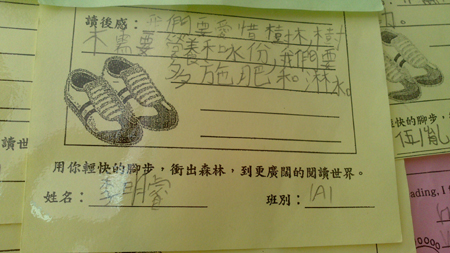 讀後感：我們要愛惜樹林，樹
木需要營養和水份，我們要
多施肥和淋水。
用你輕快的腳步，衝出森林，到更廣闊的閱讀世界。
姓名：李明睿
班別：1A1
讀世
的腳步，
伍胤
ading, I